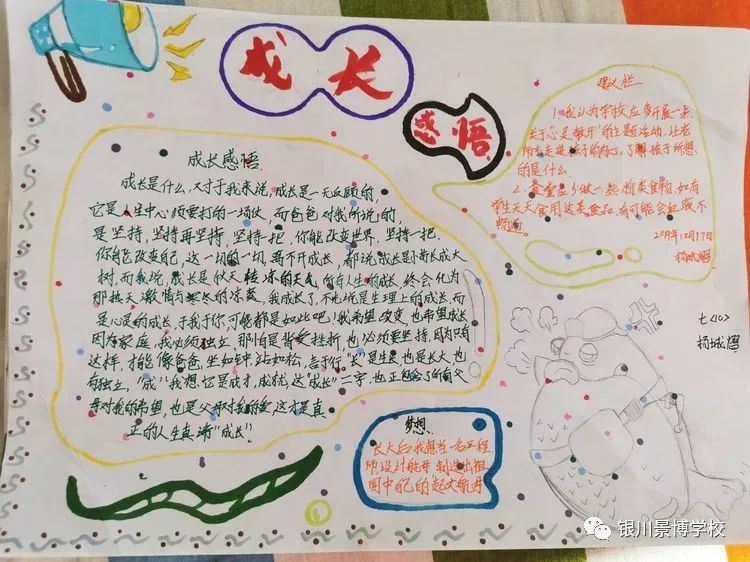 成长
感悟
成长感悟
成长是什么,对于我来说,成长是一无反顾的,
它是人生中必须要打的一场仗,而爸爸对我所说的,
是坚持,坚持再坚持,坚持一把,你能改变世界,坚持一把
你能改变自己,这一切的一切,离不开成长,都说成长是小树长成大
树,而我说,成长是秋天转凉的天气,
我成长了,不光说是生理上的成长,而
是心灵的成长,于我于你,可能都是如此吧!我希望改变,也希望成长
因为家庭,我必须独立,那怕是背受挫折,也必须要坚持,因为只有
这样,才能像爸爸,坐如钟,站如松,言于行,"长"是生长也是长大也
有独立,"成"我想它是成才,成就,这"成长"二字,也正包含了所有父
母对我的希望,也是父母对我的爱,这才是真
正的人生真谛"成长"
建议栏
1.我认为学校应多开展一点
关于心灵敞开的主题活动,让老
师走进孩子的内心,了解孩子所想
的是什么
2.食堂里少做一些 类食物,如有
学生天天食用这类食品,有可能会
12月17日
七<10>
梦想
长大后我想当一名工程
师,设计航母,制造出祖
国中自己的超大航母
银川景博学校